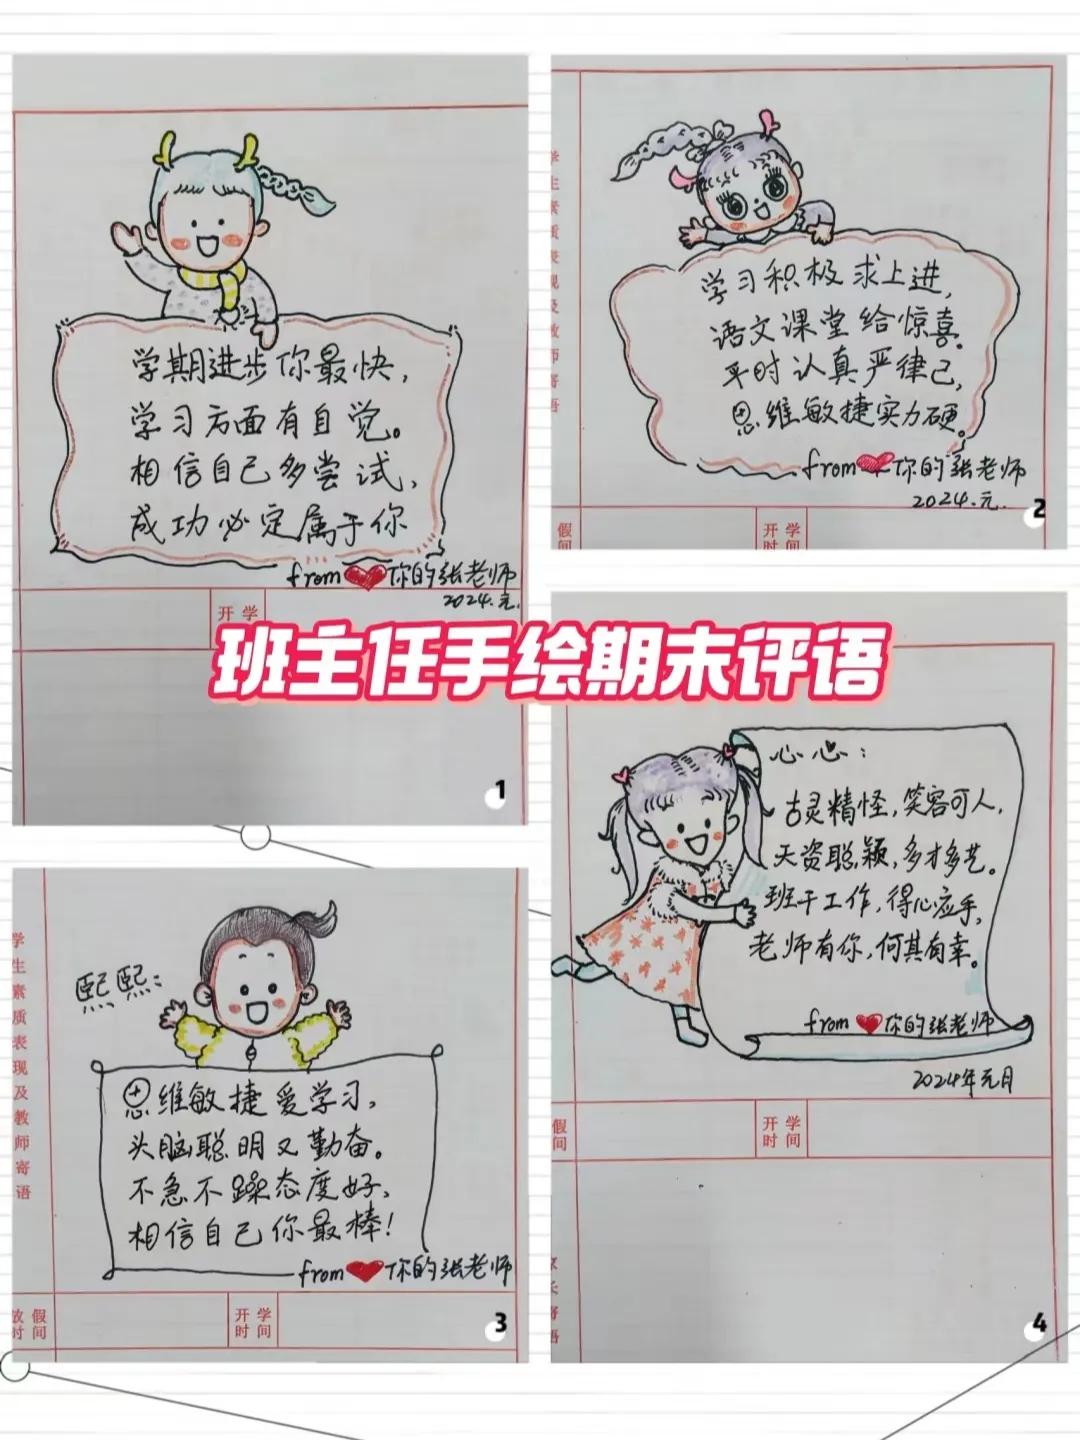 学期进步你最快，
学习方面有自觉。
相信自己多尝试，
成功必定属于你
from你的张老师
2024.元.
开学
1
学生素质表现及教师寄语
学习积极求上进，
语文课堂给惊喜。
平时认真严律己，
思维敏捷实力硬。
from你的张老师
2024.元.
假间
开学
时间
2
班主任手绘期末评语
学生素质表现及教师寄语
熙熙：
思维敏捷爱学习，
头脑聪明又勤奋。
不急不躁态度好，
相信自己你最棒！
from你的张老师
放假
时间
开学
时间
3
心心：
古灵精怪，笑容可人，
天资聪颖，多才多艺。
班干工作，得心应手，
老师有你，何其有幸。
from你的张老师
2024年元月
假间
开学
时间
家长寄语
4